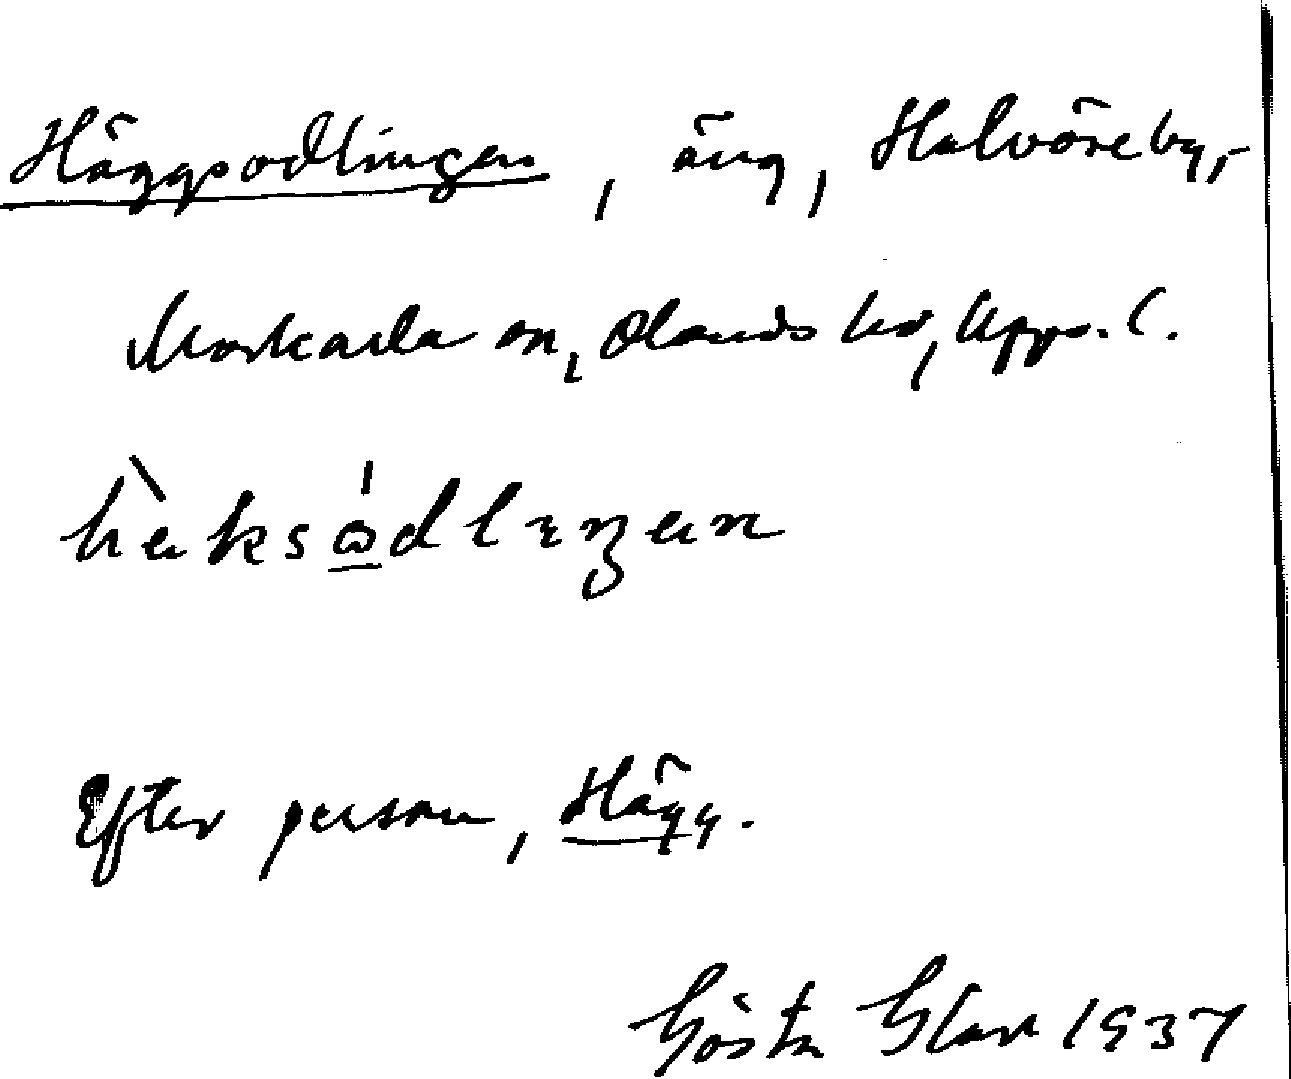 Häggsodlingen, äng, Halvöreby,
Morkarla sn, Olands hd, Upps. l.
hèksώ̲dlıŋen
Efter person, Hägg.
Gösta Glas 1937